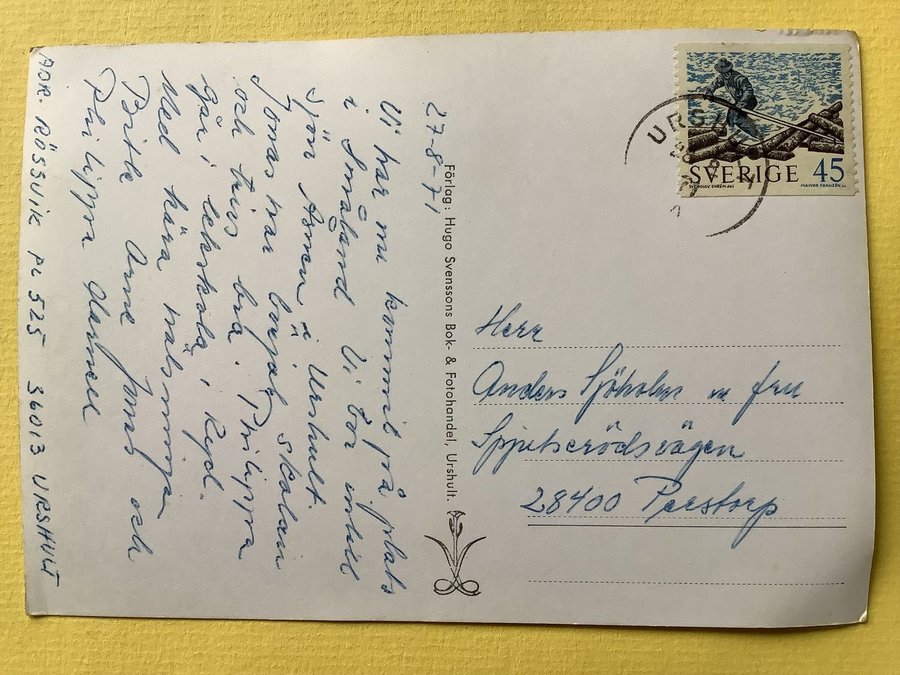 27-8-71
Vi har nu kommit på plats
i Småland Vi bor intill
sjön Åsnen i Urshult.
Jonas har börjat skolan
och trivs bra. Philippa
går i lekskola i Ryd.
Med kära hälsningar
Britt Arne Jonas och
Philippa
ADR. RÖSSVIK PL 525 36013 URSHULT
Förlag: Hugo Svenssons Bok- & Fotohandel, Urshult.
SVERIGE 45
SVENOLOV EHRÉN del. MAJVOR FRANZÉN sc.
Herr
Anders Sjöholm m fru
Spjutserödsvägen
28400 Perstorp